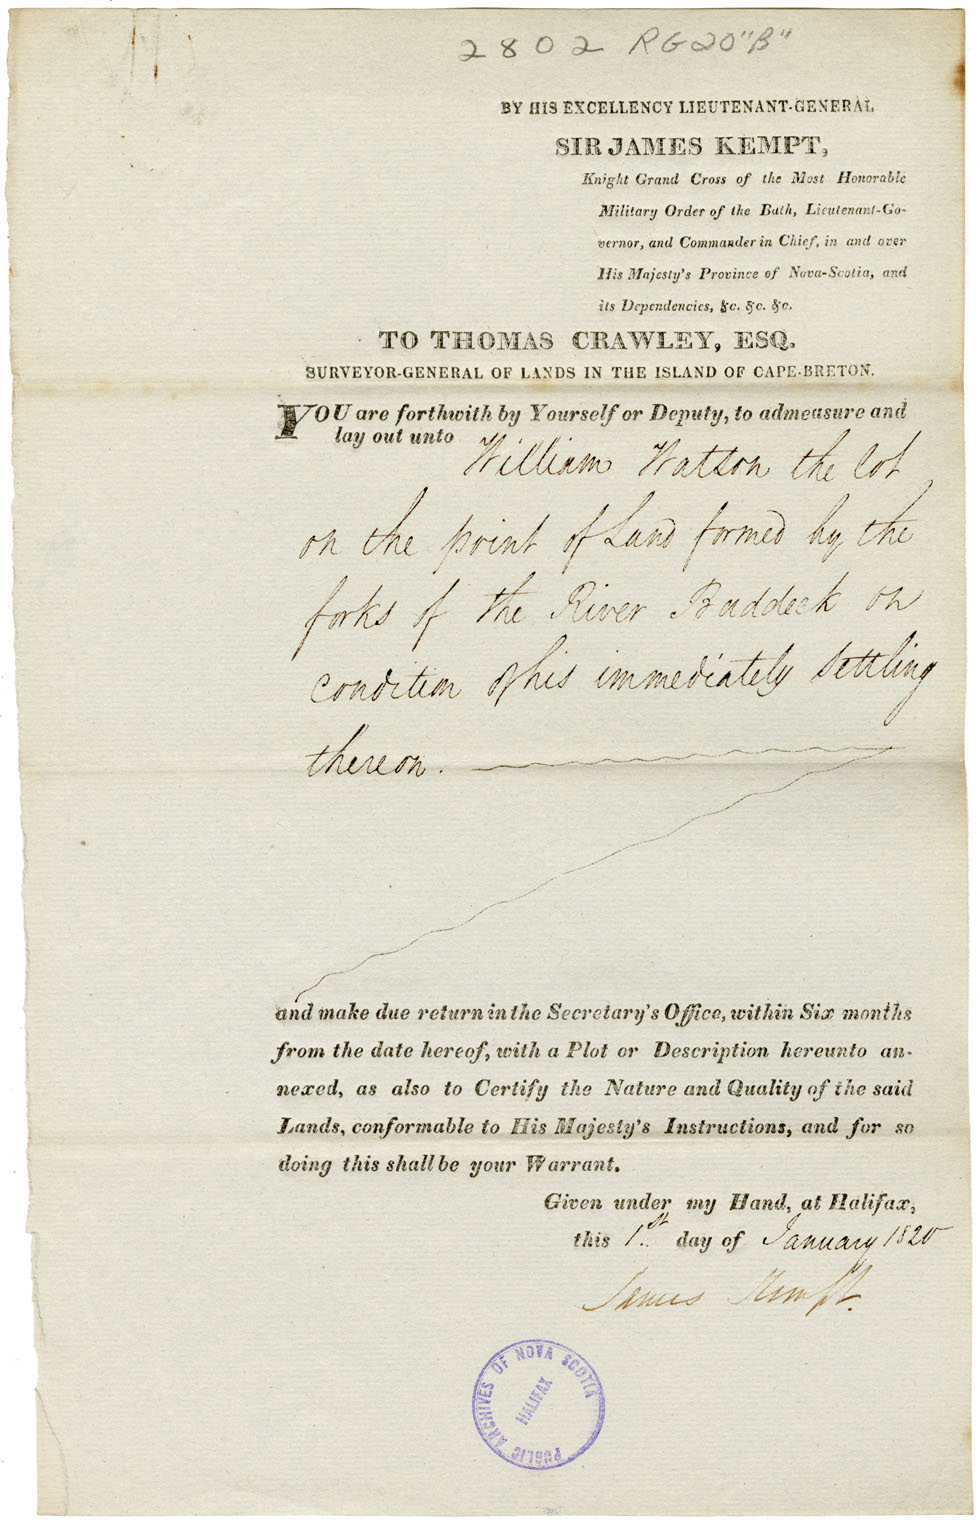 2802 RG20"B"
BY HIS EXCELLENCY LIEUTENANT-GENERAL
SIR JAMES KEMPT,
Knight Grand Cross of the Most Honorable
Military Order of the Bath, Lieutenant-Go-
vernor, and Commander in Chief, in and over
His Majesty's Province of Nova-Scotia, and
its Dependencies, &c. &c. &c.
TO THOMAS CRAWLEY, ESQ.
SURVEYOR-GENERAL OF LANDS IN THE ISLAND OF CAPE-BRETON.
YOU are forthwith by Yourself or Deputy, to admeasure and
lay out unto William Watson the lot
on the point of Land formed by the
forks of the River Baddeck on
condition of his immediately settling
thereon.
and make due return in the Secretary's Office, within Six months
from the date hereof, with a Plot or Description hereunto an-
nexed, as also to Certify the Nature and Quality of the said
Lands, conformable to His Majesty's Instructions, and for so
doing this shall be your Warrant.
Given under my Hand, at Halifax,
this 1st day of January 1820
James Kempt.
PUBLIC ARCHIVES OF NOVA SCOTIA
HALIFAX